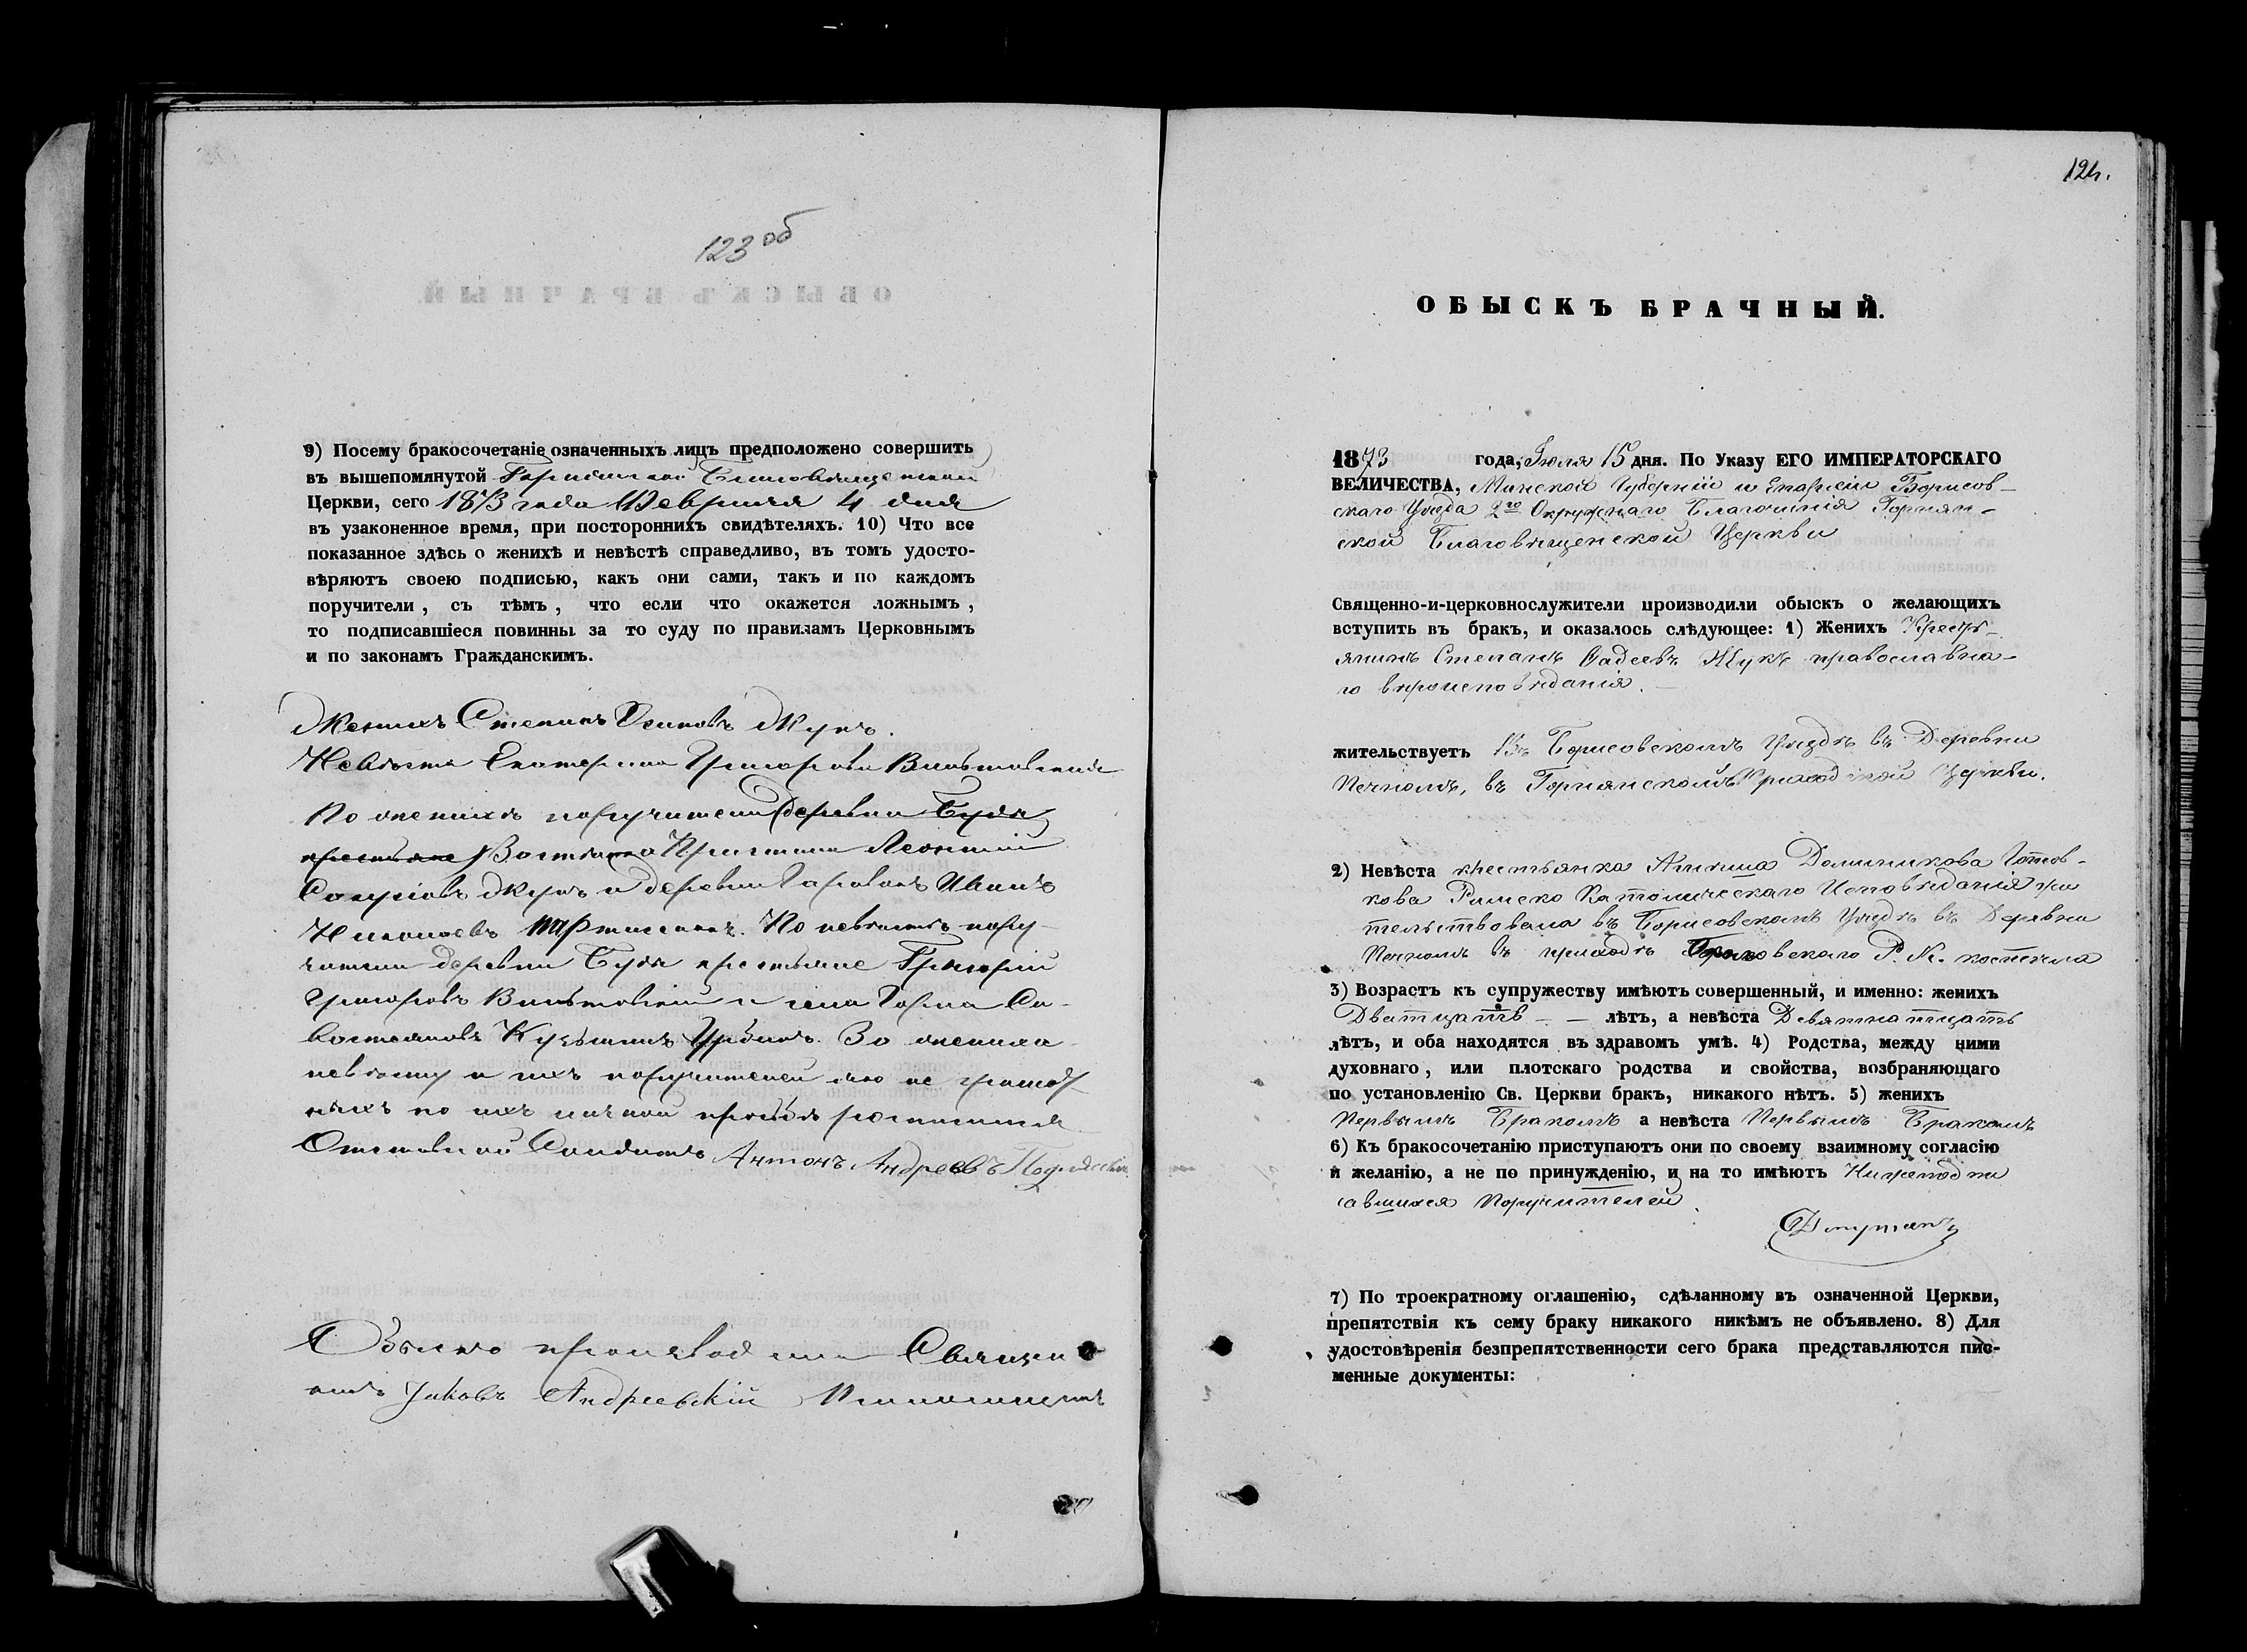 123 об
9) Посему бракосочетаніе означенныхъ лицъ предположено совершить
въ вышепомянутой Благовѣщенской
Церкви, сего 1873 года Февраля 4 дня
въ узаконенное время, при постороннихъ свидѣтеляхъ. 10) Что все
показанное здѣсь о женихѣ и невѣстѣ справедливо, въ томъ удосто-
вѣряютъ своею подписью, какъ они сами, такъ и по каждомъ
поручители, съ тѣмъ, что если что окажется ложнымъ,
то подписавшіеся повинны за то суду по правиламъ Церковнымъ
и по законамъ Гражданскимъ.
Женихъ Степанъ Осиповъ Жукъ.
Невѣста Екатерина Григорьева
По женихѣ поручители деревни Буды
крестьяне Леонтій
Жукъ и деревни Иванъ
Николаевъ По невѣстѣ пору-
чители деревни Буды крестьяне Григорій
Григорьевъ и села Горна Са-
востьяновъ За жениха
невѣсту и ихъ поручителей яко не грамот-
ныхъ по ихъ личной прозьбѣ росписался
Отставной Солдатъ Антонъ Андреевъ
Обыскъ производили Священ
никъ Іаковъ Андреевскій
124.
ОБЫСКЪ БРАЧНЫЙ.
1873 года, Іюля 15 дня. По Указу ЕГО ИМПЕРАТОРСКАГО
ВЕЛИЧЕСТВА, Минской Губерніи и Епархіи Борисов-
скаго Уѣзда 2го Окружнаго Благочинія Горнян-
ской Благовѣщенской Церкви
Священно-и-церковнослужители производили обыскъ о желающихъ
вступить въ бракъ, и оказалось слѣдующее: 1) Женихъ Кресть-
янинъ Степанъ Фадеевъ Жукъ православна-
го вѣроисповѣданія.
жительствуетъ Въ Борисовскомъ Уѣздѣ въ Деревни
въ Горнянской Приходской Церкви.
2) Невѣста крестьянка Доминикова
Римско Католическаго Исповѣданія жи
тельствовала въ Борисовскомъ Уѣздѣ въ Деревни
въ приходѣ Р. К. костела
3) Возрастъ къ супружеству имѣютъ совершенный, и именно: женихъ
Дватцать - - лѣтъ, а невѣста Девятнатцать
лѣтъ, и оба находятся въ здравомъ умѣ. 4) Родства, между ними
духовнаго, или плотскаго родства и свойства, возбраняющаго
по установленію Св. Церкви бракъ, никакого нѣтъ. 5) женихъ
Первымъ Бракомъ а невѣста Первымъ Бракомъ
6) Къ бракосочетанію приступаютъ они по своему взаимному согласію
и желанію, а не по принужденію, и на то имѣютъ Нижеподпи
савшихся Поручителей
7) По троекратному оглашенію, сдѣланному въ означенной Церкви,
препятствія къ сему браку никакого никѣмъ не объявлено. 8) Для
удостовѣренія безпрепятственности сего брака представляются пис-
менные документы: